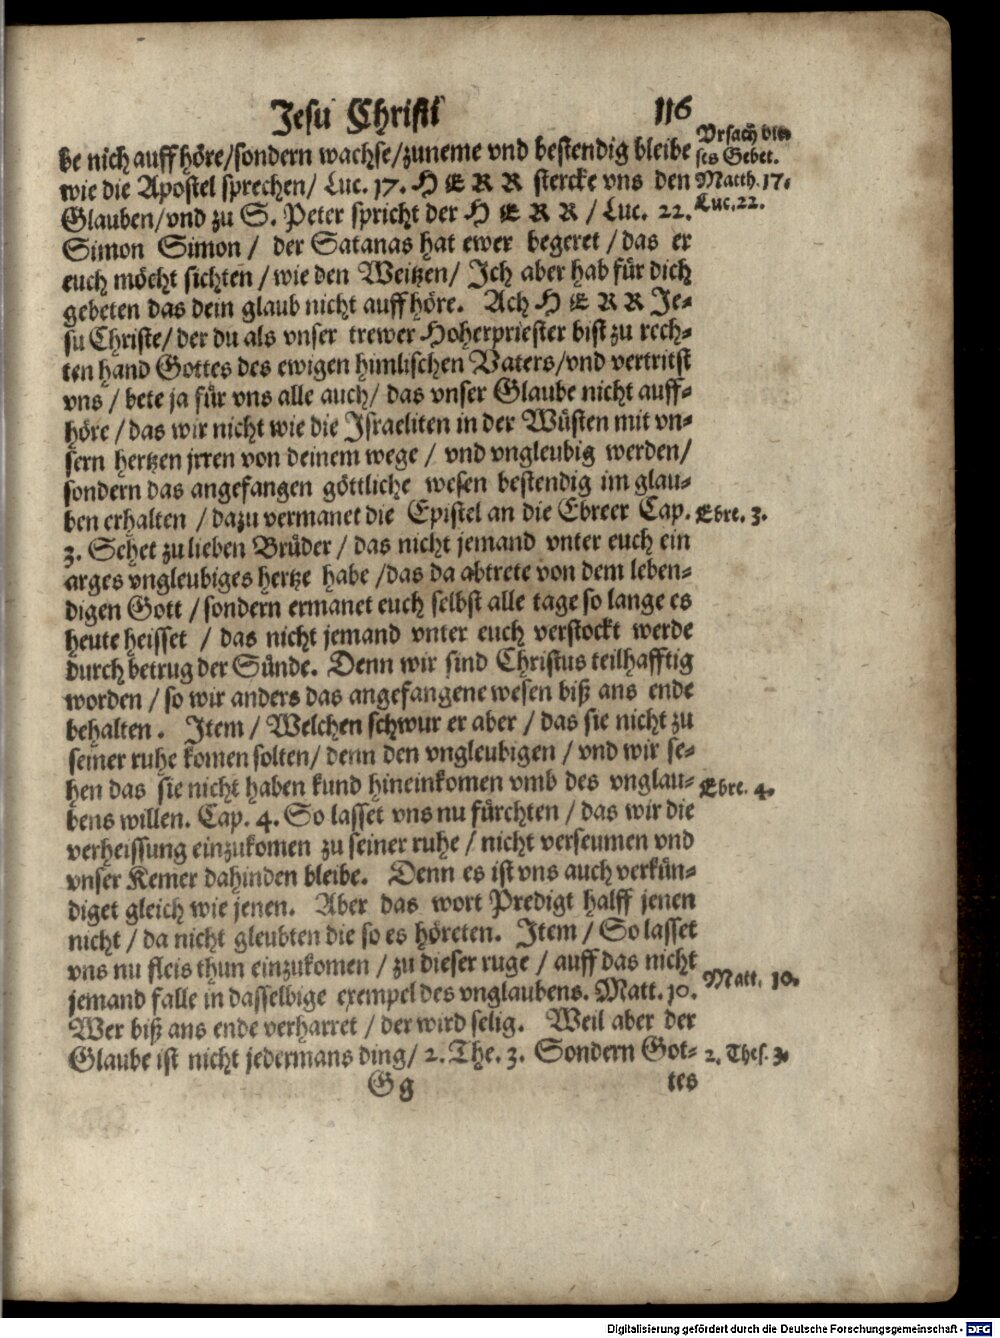 Jesu Christi 116
be nich auffhöre/sondern wachse/zuneme vnd bestendig bleibe
wie die Apostel sprechen/ Luc. 17. HERR stercke vns den
Glauben/vnd zu S. Peter spricht der HERR/ Luc. 22.
Simon Simon/ der Satanas hat ewer begeret/das er
euch möcht sichten/wie den Weitzen/ Ich aber hab für dich
gebeten das dein glaub nicht auffhöre. Ach HERR Je-
su Christe/der du als vnser trewer Hoherpriester bist zu rech-
ten hand Gottes des ewigen himlischen Vaters/vnd vertritst
vns/bete ja für vns alle auch/das vnser Glaube nicht auff-
höre/das wir nicht wie die Israeliten in der Wüsten mit vn-
sern hertzen jrren von deinem wege/ vnd vngleubig werden/
sondern das angefangen göttliche wesen bestendig im glau-
ben erhalten/dazu vermanet die Epistel an die Ebreer Cap.
3. Sehet zu lieben Brüder/das nicht jemand vnter euch ein
arges vngleubiges hertze habe/das da abtrete von dem leben-
digen Gott/sondern ermanet euch selbst alle tage so lange es
heute heisset/das nicht jemand vnter euch verstockt werde
durch betrug der Sünde. Denn wir sind Christus teilhafftig
worden/so wir anders das angefangene wesen biß ans ende
behalten. Item/Welchen schwur er aber/das sie nicht zu
seiner ruhe komen solten/denn den vngleubigen/vnd wir se-
hen das sie nicht haben kund hineinkomen vmb des vnglau-
bens willen. Cap. 4. So lasset vns nu fürchten/das wir die
verheissung einzukomen zu seiner ruhe/nicht verseumen vnd
vnser Kemer dahinden bleibe. Denn es ist vns auch verkün-
diget gleich wie jenen. Aber das wort Predigt halff jenen
nicht/da nicht gleubten die so es höreten. Item/So lasset
vns nu fleis thun einzukomen/zu dieser ruge/auff das nicht
jemand falle in dasselbige exempel des vnglaubens. Matt. 10.
Wer biß ans ende verharret/der wird selig. Weil aber der
Glaube ist nicht jedermans ding/ 2. The. 3. Sondern Got-
Gg tes
Vrsach die-
ses Gebet.
Matth. 17.
Luc. 22.
Ebre. 3.
Ebre. 4.
Matt. 10.
2. Thes. 3.
Digitalisierung gefördert durch die Deutsche Forschungsgemeinschaft - DFG